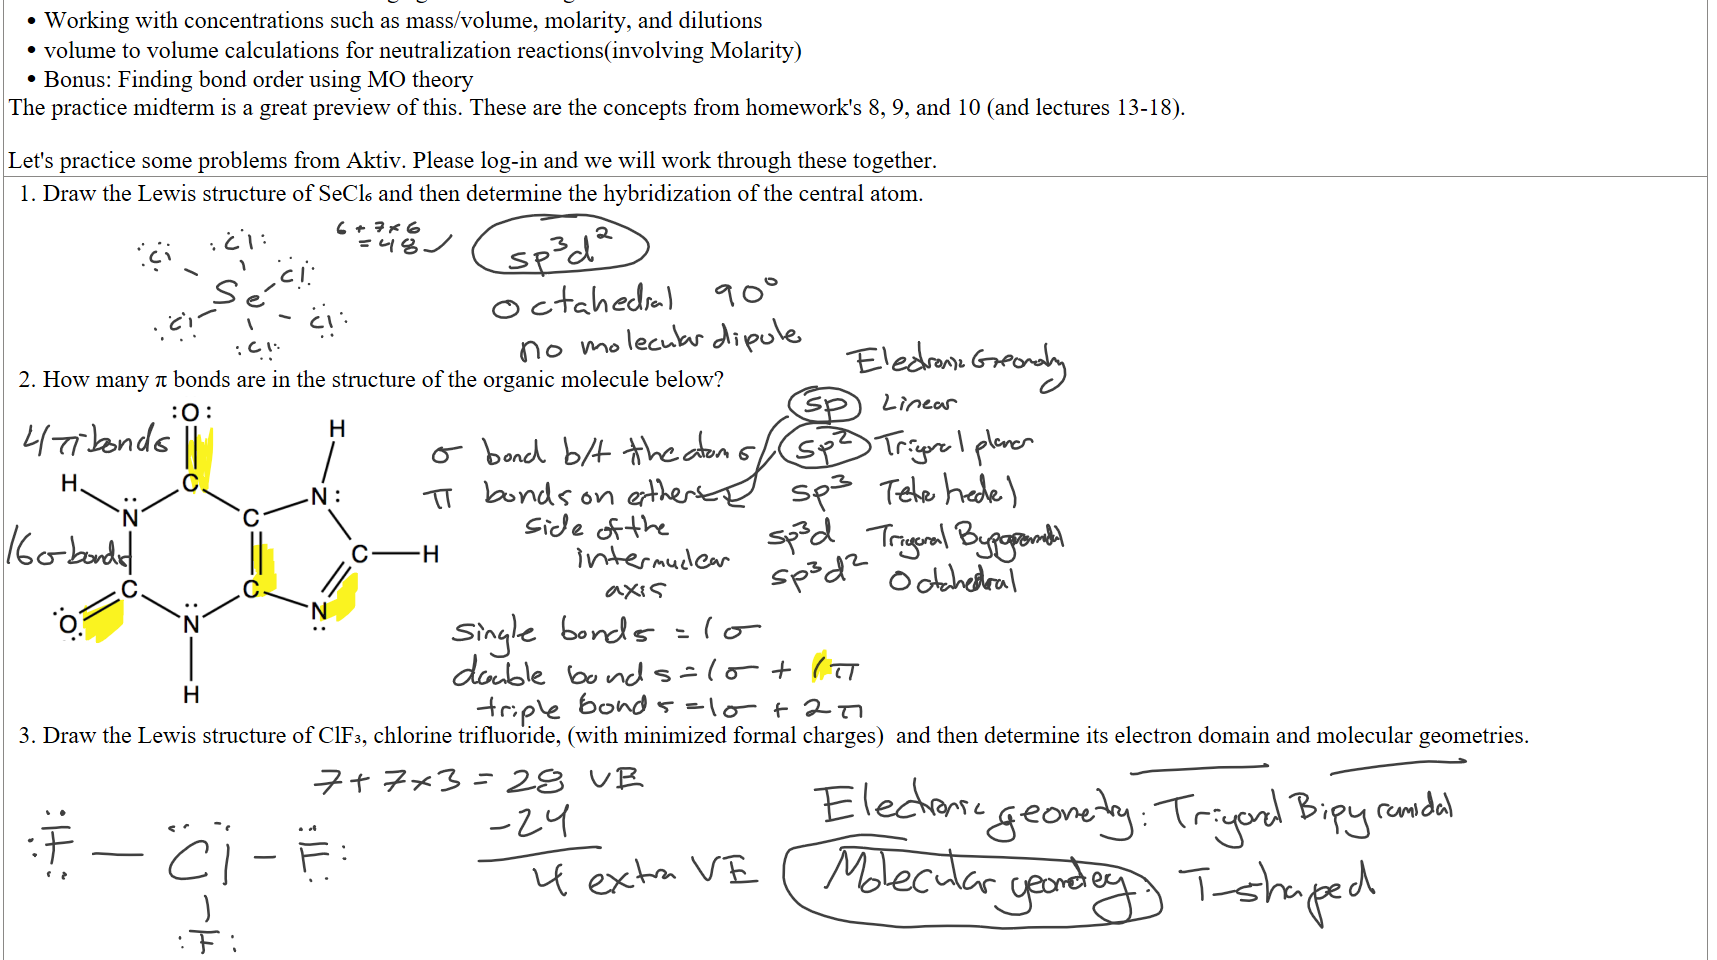 • Working with concentrations such as mass/volume, molarity, and dilutions
• volume to volume calculations for neutralization reactions(involving Molarity)
• Bonus: Finding bond order using MO theory
The practice midterm is a great preview of this. These are the concepts from homework's 8, 9, and 10 (and lectures 13-18).
Let's practice some problems from Aktiv. Please log-in and we will work through these together.
1. Draw the Lewis structure of SeCl₆ and then determine the hybridization of the central atom.
6 + 7×6
= 48 ✓
:Cl:
:Cl:
Cl:
Se
:Cl
Cl:
:Cl:
sp³d²
Octahedral 90°
no molecular dipole
2. How many π bonds are in the structure of the organic molecule below?
4 π bonds
16 σ bonds
:O:
H
H
C
N
N:
C
C
H
C
C
O
N
N
H
σ bond b/t the atoms
π bonds on either
side of the
internuclear
axis
Electronic Geometry
sp Linear
sp² Trigonal planar
sp³ Tetrahedral
sp³d Trigonal Bypyramidal
sp³d² Octahedral
single bonds = 1 σ
double bonds = 1 σ + 1 π
triple bonds = 1 σ + 2 π
3. Draw the Lewis structure of ClF₃, chlorine trifluoride, (with minimized formal charges) and then determine its electron domain and molecular geometries.
7 + 7×3 = 28 VE
-24
4 extra VE
:F — Cl — F:
:F:
Electronic geometry: Trigonal Bipyramidal
Molecular geometry: T-shaped